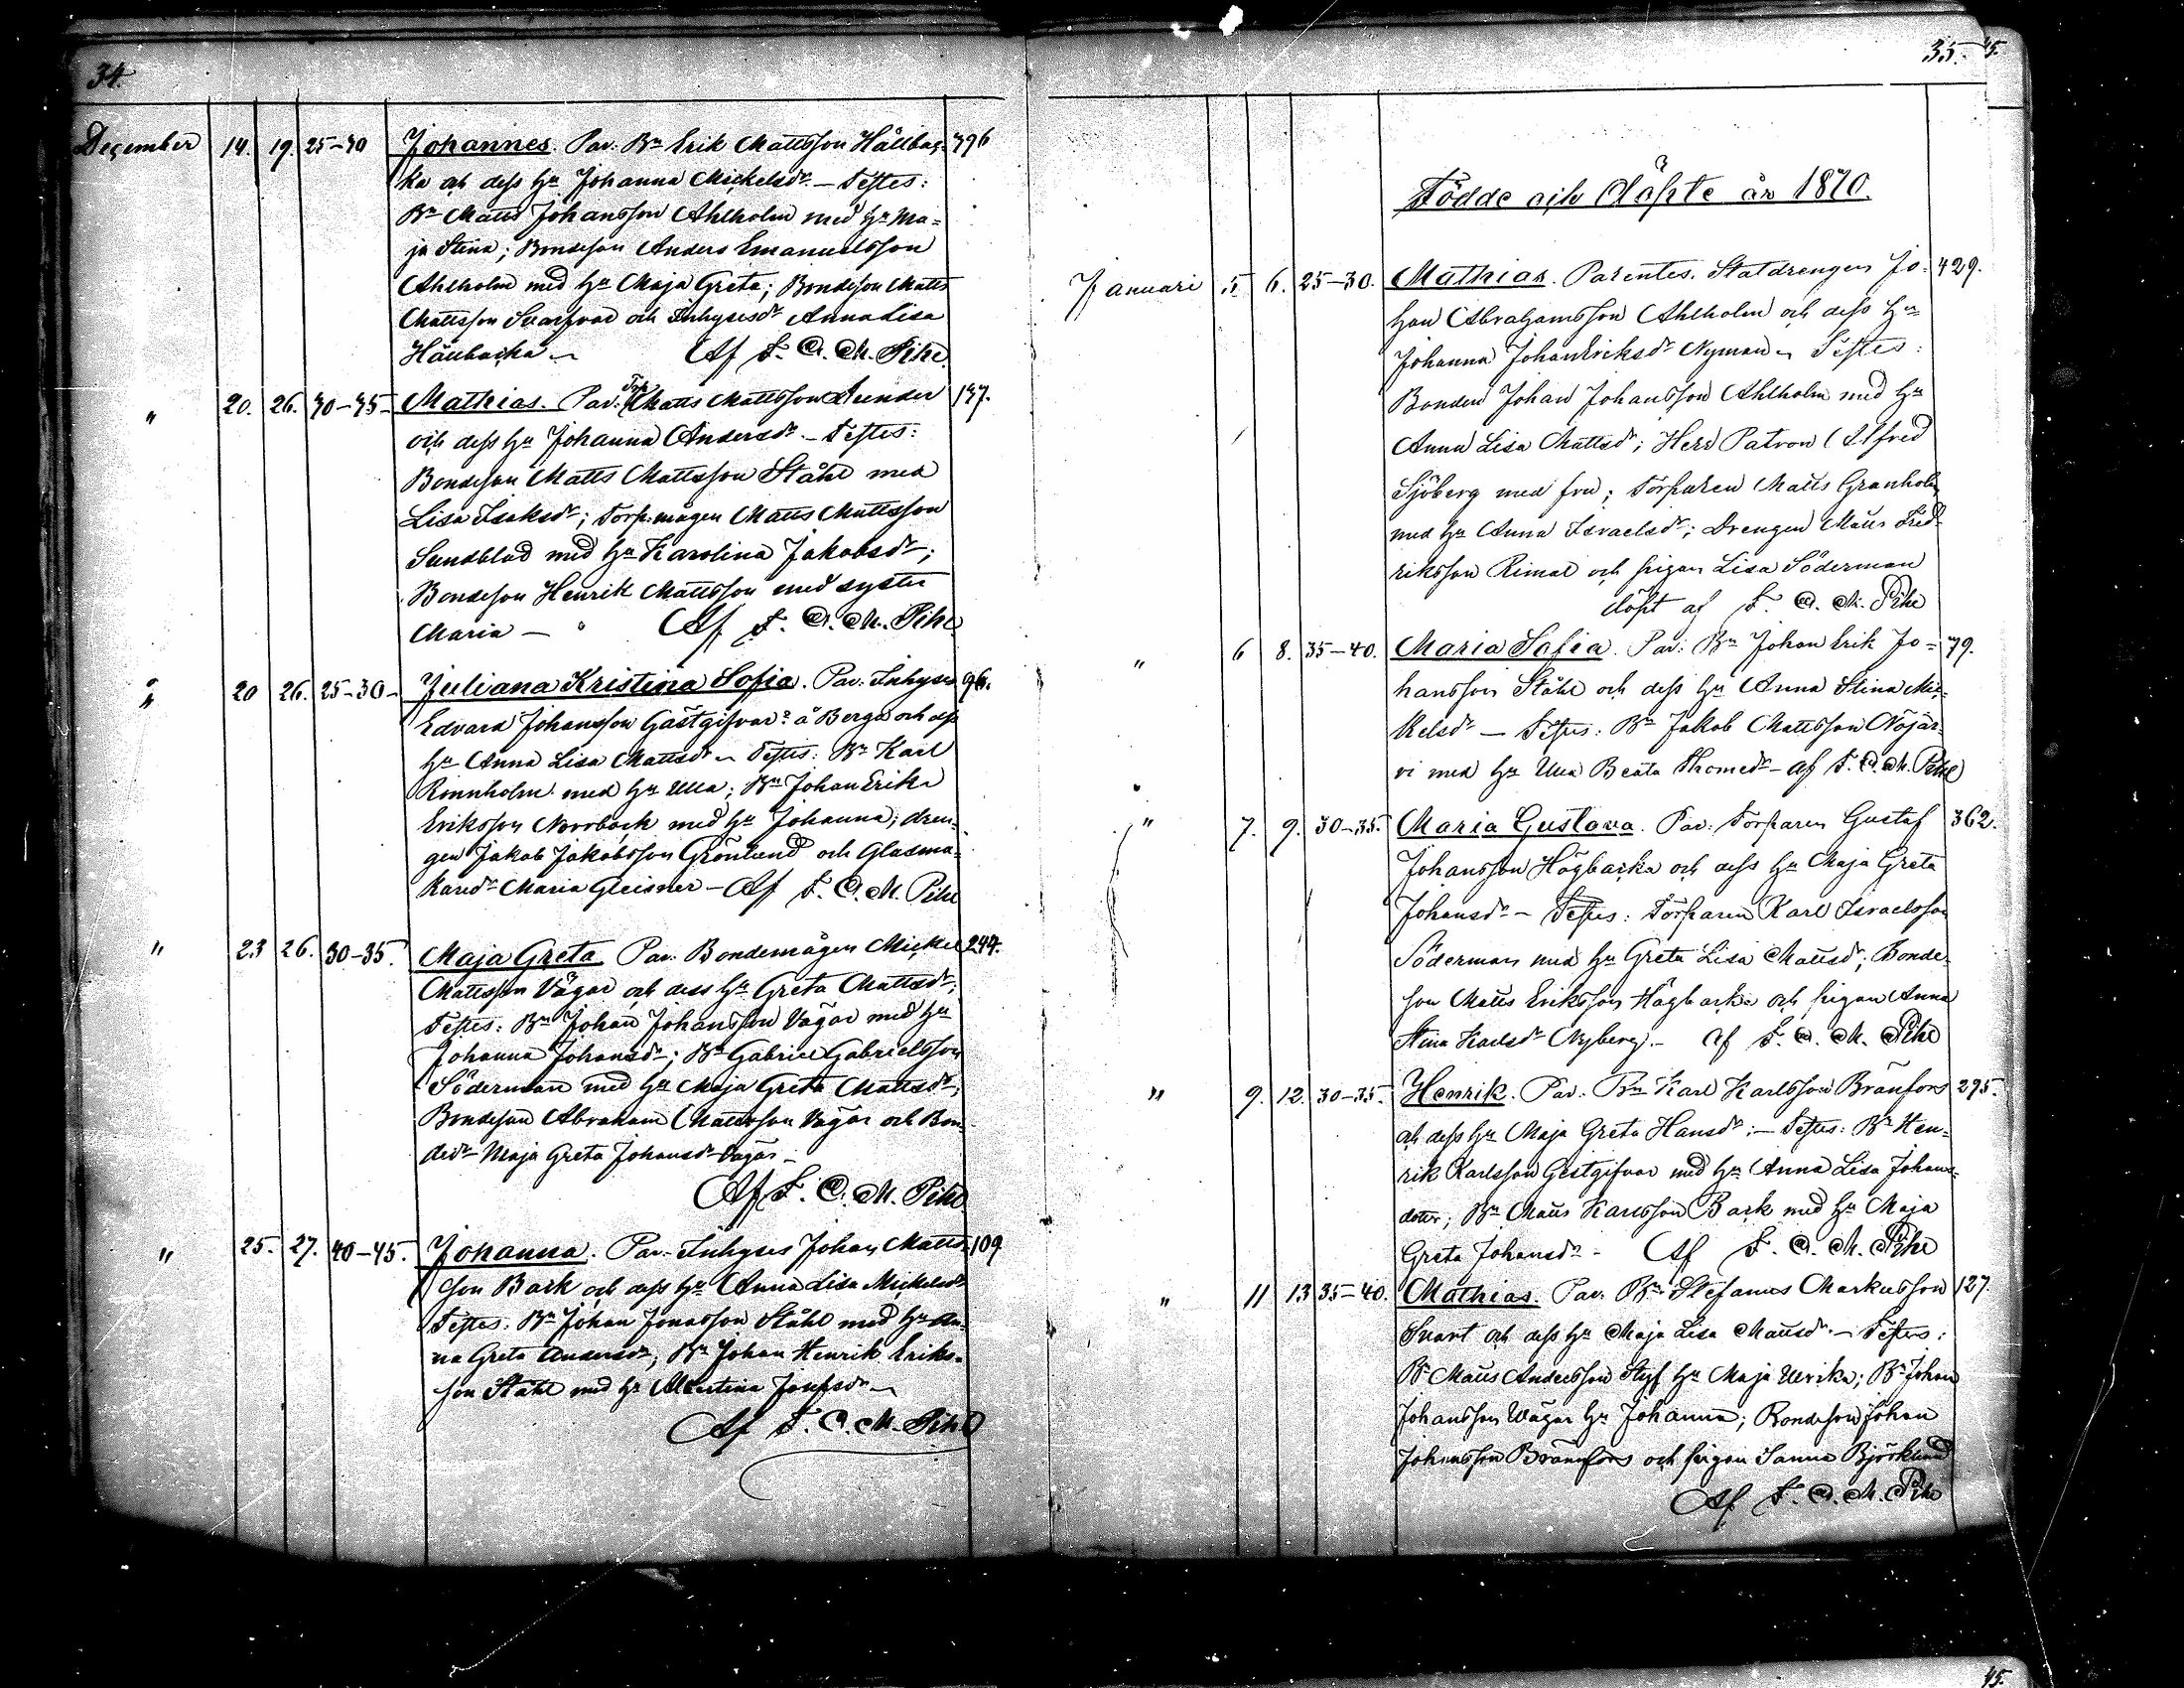 34.
December 14. 19. 25-30 Johannes. Par: Bn Erik Mattsson Hällbac- 396
ka och dess Hu Johanna Mickelsdr. — Testes:
Bn Matts Johansson Ahlholm med Hu Ma=
ja Stina; Bondeson Anders Emanuelsson
Ahlholm med Hu Maja Greta; Bondeson Matts
Mattsson Svarfvar och Inhysesdr Anna Lisa
Af F. O. M. Pihl.
" 20. 26. 40-45 Mathias. Par: Torp. Matts Mattsson 147.
och dess Hu Johanna Andersdr. — Testes:
Bondeson Matts Mattsson Ståhl med
Lisa Isaksdr; Torp: mågen Matts Mattsson
Sundblad med Hu Karolina Jakobsdr;
Bondeson Henrik Mattsson med syster
Maria — Af F. O. M. Pihl
" 20 26. 25-30- Juliana Kristina Sofia. Par: Inhyses 96.
Edvard Johansson Gästgifvar å Berga och dess
Hu Anna Lisa Mattsdr — Testes: Bn Karl
Rönnholm med Hu Ulla; Bn Johan Erik
Eriksson Norrback med Hu Johanna; dren-
gen Jakob Jakobsson Grönlund och Glasma-
karedr Maria Gleisner — Af F. O. M. Pihl
" 23 26. 30-35. Maja Greta Par: Bondemågen Mickel 244.
Mattsson Vägar och dess Hu Greta Mattsdr;
Testes: Bn Johan Johansson Vägar med Hu
Johanna Johansdr; Bn Gabriel Gabrielsson
Söderman med Hu Maja Greta Mattsdr;
Bondeson Abraham Mattsson Vägar och Bon-
dedr Maja Greta Johansdr Vägar —
Af F. O. M. Pihl
" 25. 27. 40-45. Johanna. Par: Inhyses Johan Matts- 109
son Back och dess Hu Anna Lisa Mickelsdr
Testes: Bn Johan Jonasson Ståhl med Hu An-
na Greta Andersdr; Bn Johan Henrik Eriks-
son Ståhl med Hu Albertina Josefsdr —
Af F. O. M. Pihl
35. 45.
Födde och Döpte år 1870.
Januari 5 6. 25-30. Mathias. Parentes. Statdrengen Jo- 429.
han Abrahamsson Ahlholm och dess Hu
Johanna Johan Eriksdr Nyman — Testes:
Bonden Johan Johansson Ahlholm med Hu
Anna Lisa Mattsdr; Herr Patron Alfred
Sjöberg med fru; Torparen Matts Granholm
med Hu Anna Israelsdr; Drengen Matts Fred-
riksson Rimal och pigan Lisa Söderman
döpt af F. O. M. Pihl
" 6 8. 35-40. Maria Sofia. Par: Bn Johan Erik Jo= 79.
hansson Ståhl och dess Hu Anna Stina Mic-
kelsdr — Testes: Bn Jakob Mattsson Nöjär-
vi med Hu Ulla Beata Thomedr — af F. O. M. Pihl
" 7. 9. 30-35. Maria Gustava. Par: Torparen Gustaf 362.
Johansson Högbacka och dess Hu Maja Greta
Johansdr — Testes: Torparen Karl Israelsson
Söderman med Hu Greta Lisa Mattsdr; Bonde-
son Matts Eriksson Högbacka och pigan Anna
Stina Karlsdr Nyberg. — Af F. O. M. Pihl
" 9. 12. 30-35. Henrik. Par: Bn Karl Karlsson Bränfors 295.
och dess Hu Maja Greta Hansdr: — Testes: Bn Hen-
rik Karlsson Gestgifvar med Hu Anna Lisa Johans-
doter; Bn Matts Karlsson Back med Hu Maja
Greta Johansdr — Af F. O. M. Pihl
" 11 13 35-40. Mathias. Par: Bn Stefanus Markusson 127.
Svart och dess Hu Maja Lisa Mattsdr. — Testes:
Bn Matts Andersson Styf Hu Maja Ulrika; Bn Johan
Johansson Wägar Hu Johanna; Bondeson Johan
Johansson Brännfors och pigan Sanna Björklund
Af F. O. M. Pihl
45.